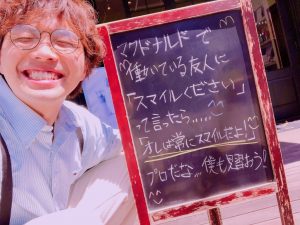 マクドナルドで
働いている友人に
「スマイルください」
って言ったら.....
「オレは常にスマイルだよ!」
プロだな... 僕も見習おう!